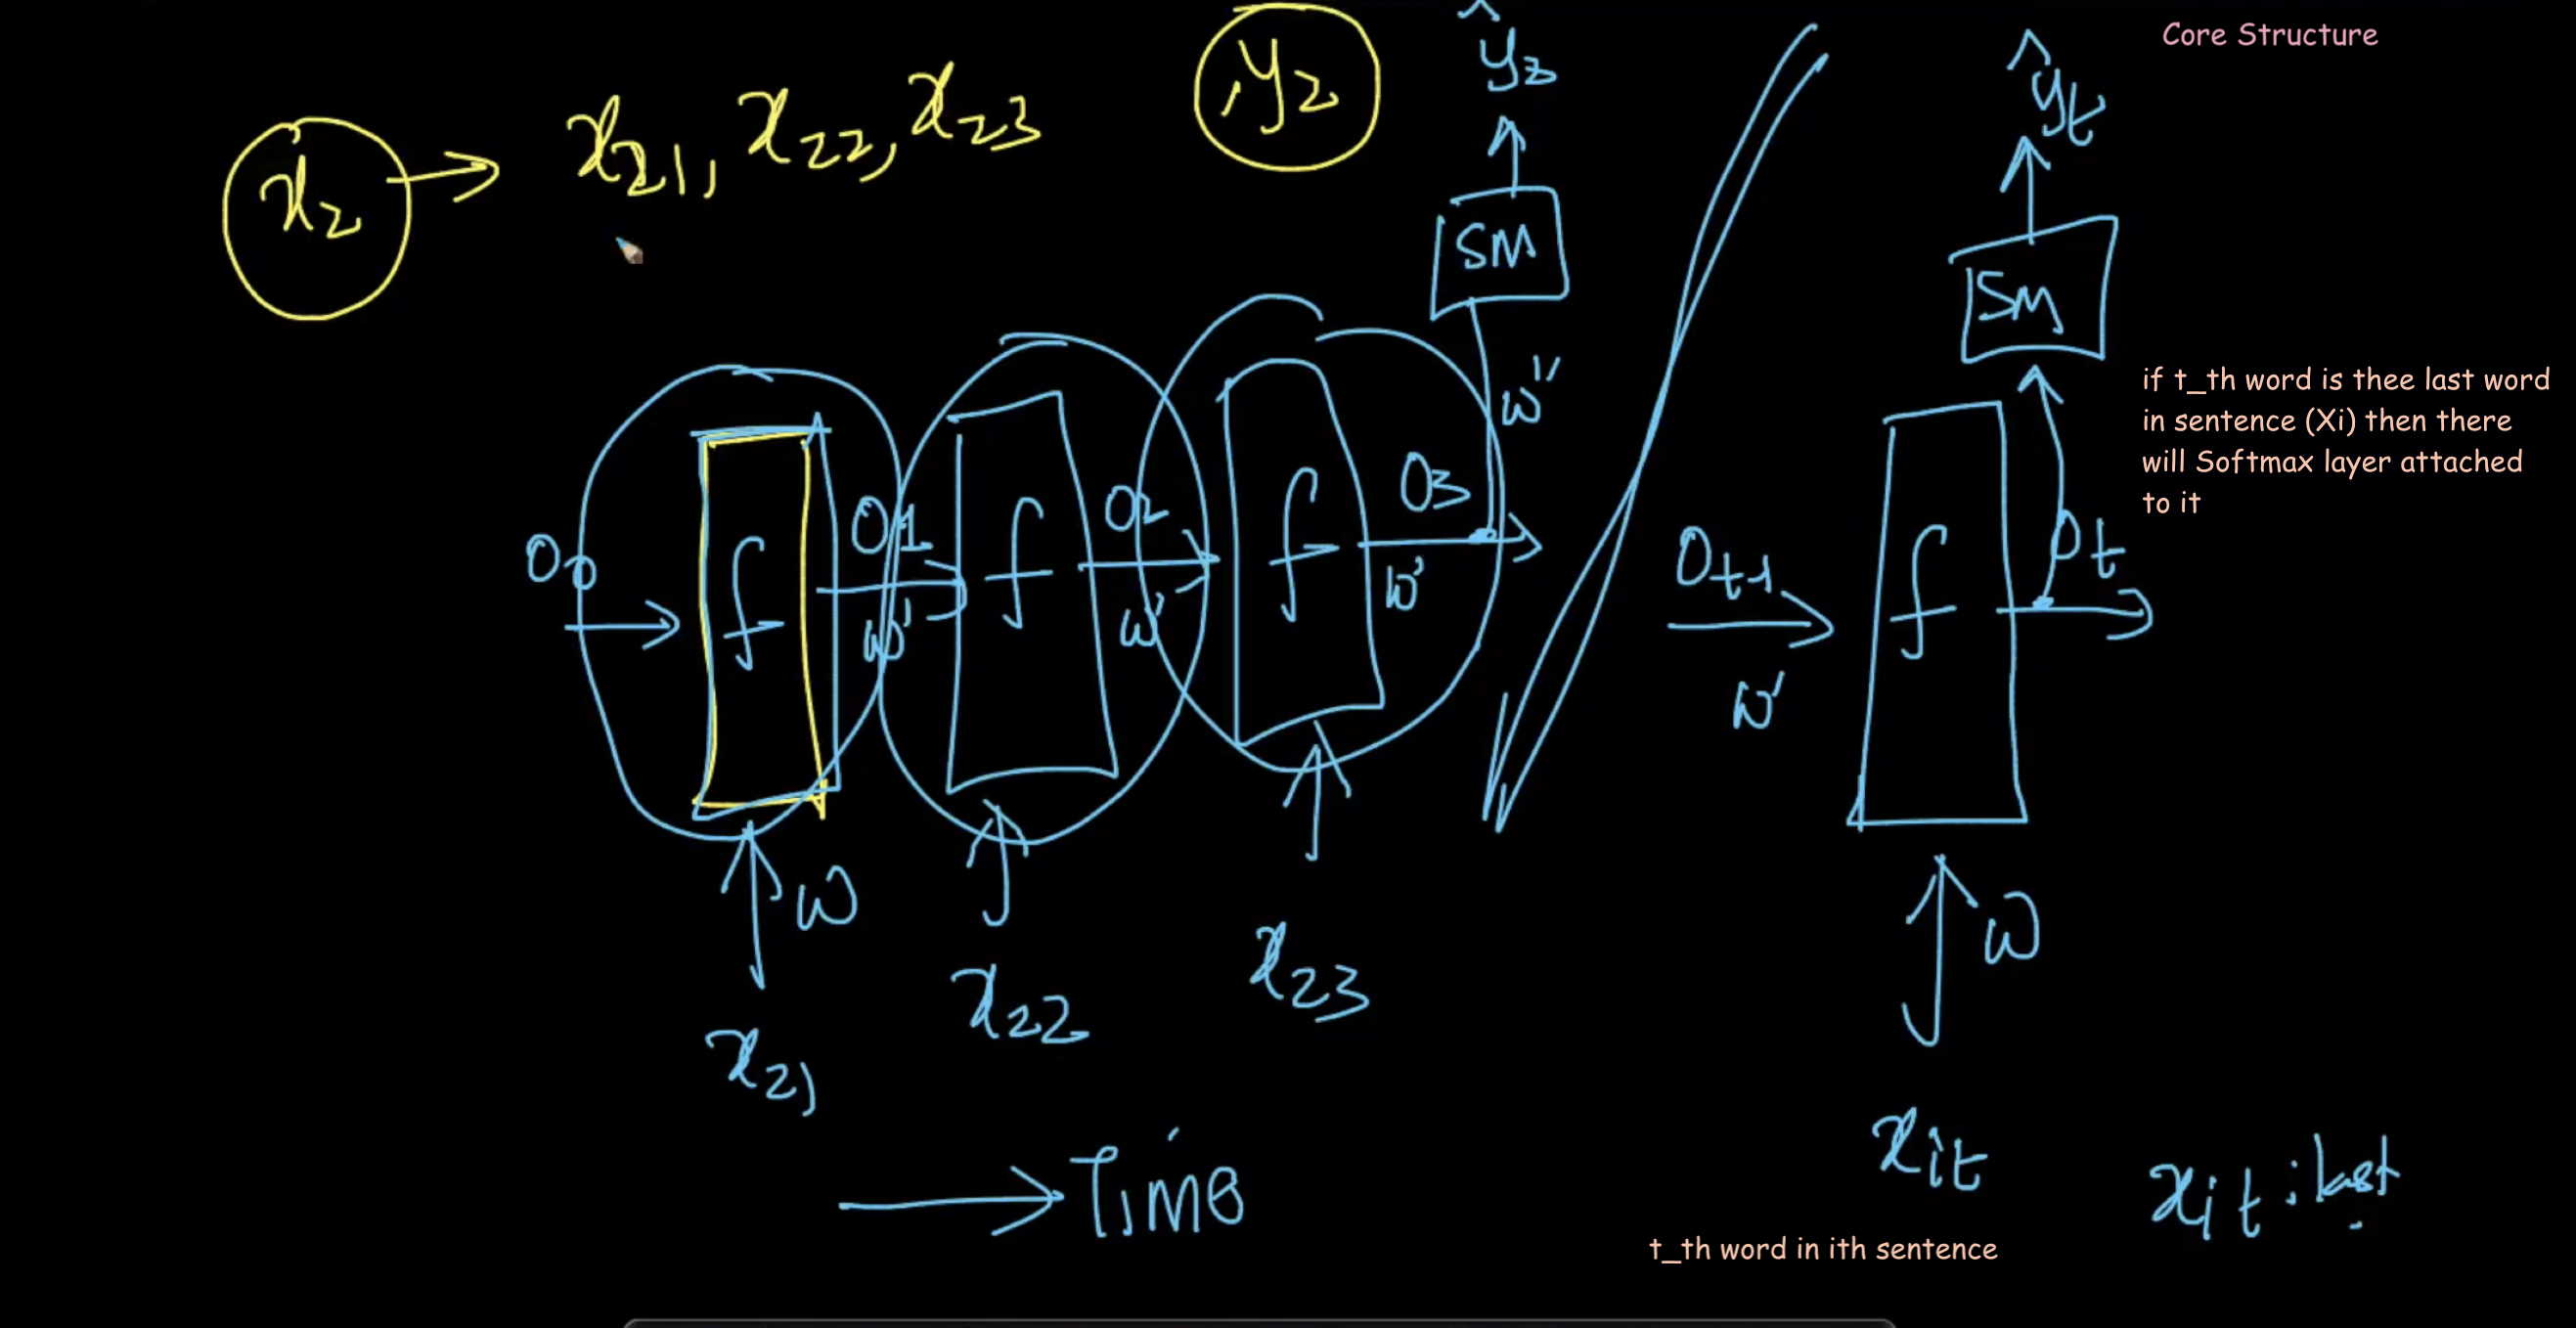 Core Structure
x2 → x21, x22, x23
, y2
ŷ2
SM
w''
O0
f
O1
w'
f
O2
w'
f
O3
w'
w
x21
x22
x23
→ Time
ŷt
SM
if t_th word is thee last word
in sentence (Xi) then there
will Softmax layer attached
to it
Ot-1
w'
f
Ot
w
xit
xit : last
t_th word in ith sentence